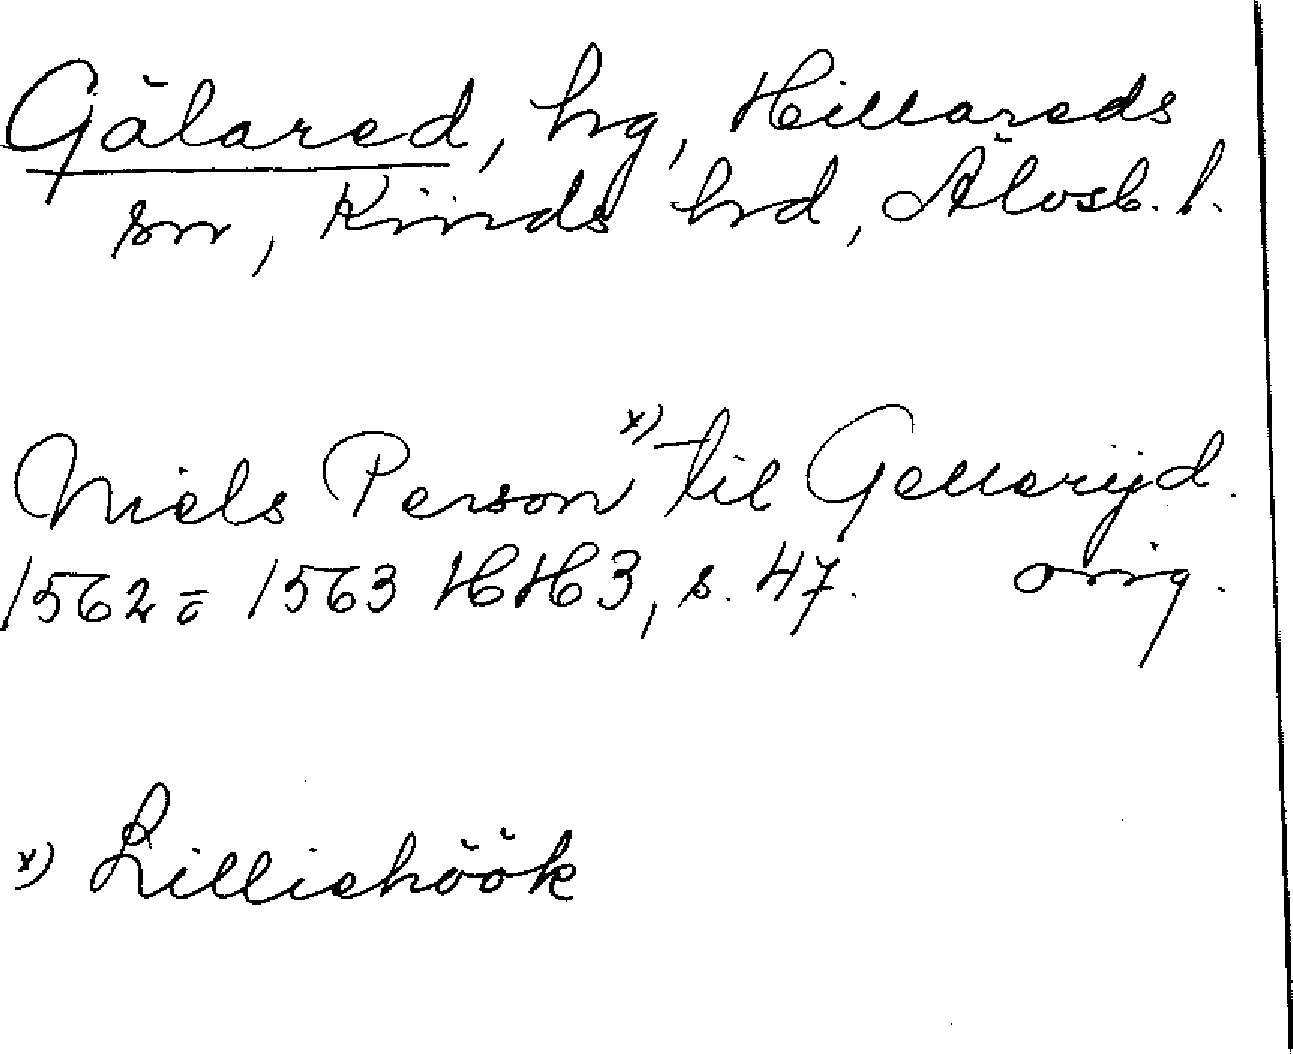 Gälared, hg, Hillareds
sn, Kinds hrd, Älvsb. l.
Niels Person x) til Gellerijd.
1562 ō 1563 HH3, s. 47. orig.
x) Lilliehöök